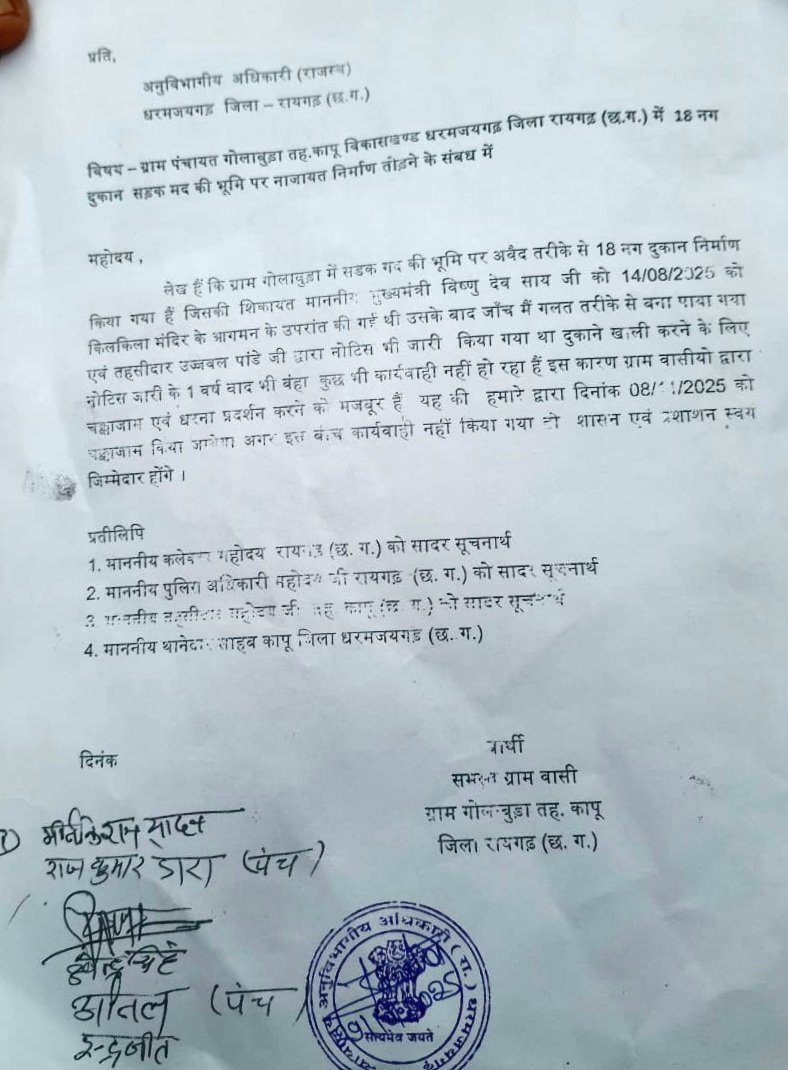 प्रति,
अनुविभागीय अधिकारी (राजस्व)
धरमजयगढ़ जिला – रायगढ़ (छ.ग.)
विषय – ग्राम पंचायत गोलाबुड़ा तह.कापू विकासखण्ड धरमजयगढ़ जिला रायगढ़ (छ.ग.) में 18 नग
दुकान सड़क मद की भूमि पर नाजायत निर्माण तोड़ने के संबध में
महोदय ,
लेख हैं कि ग्राम गोलाबुड़ा में सडक मद की भूमि पर अवैद तरीके से 18 नग दुकान निर्माण
किया गया हैं जिसकी शिकायत माननीय मुख्यमंत्री विष्णु देव साय जी को 14/08/2025 को
किलकिला मंदिर के आगमन के उपरांत की गई थी उसके बाद जाँच मैं गलत तरीके से बना पाया गया
एवं तहसीदार उज्जवल पांडे जी द्वारा नोटिस भी जारी किया गया था दुकाने खाली करने के लिए
नोटिस जारी के 1 वर्ष वाद भी वंहा कुछ भी कार्यवाही नहीं हो रहा हैं इस कारण ग्राम वासीयो द्वारा
चक्काजाम एवं धरना प्रदर्शन करने को मजबूर हैं यह की हमारे द्वारा दिनांक 08/ /2025 को
चक्काजाम किया जायेगा अगर इस बीच कार्यवाही नहीं किया गया तो शासन एवं प्रशाशन स्वय
जिम्मेदार होंगे ।
प्रतीलिपि
1. माननीय कलेक्टर महोदय रायगढ़ (छ. ग.) को सादर सूचनार्थ
2. माननीय पुलिस अधिकारी महोदय जी रायगढ़ (छ. ग.) को सादर सूचनार्थ
3 माननीय तहसीलदार महोदय जी तह. कापू (छ. ग.) को सादर सूचनार्थ
4. माननीय थानेदार साहब कापू जिला धरमजयगढ़ (छ. ग.)
दिनंक
प्रार्थी
समस्त ग्राम वासी
ग्राम गोलाबुड़ा तह. कापू
जिला रायगढ़ (छ. ग.)
राजकुमार डारा (पंच)
(पंच
इन्द्रजीत
अनुविभागीय अधिकारी (रा.) धरमजयगढ़
सत्यमेव जयते